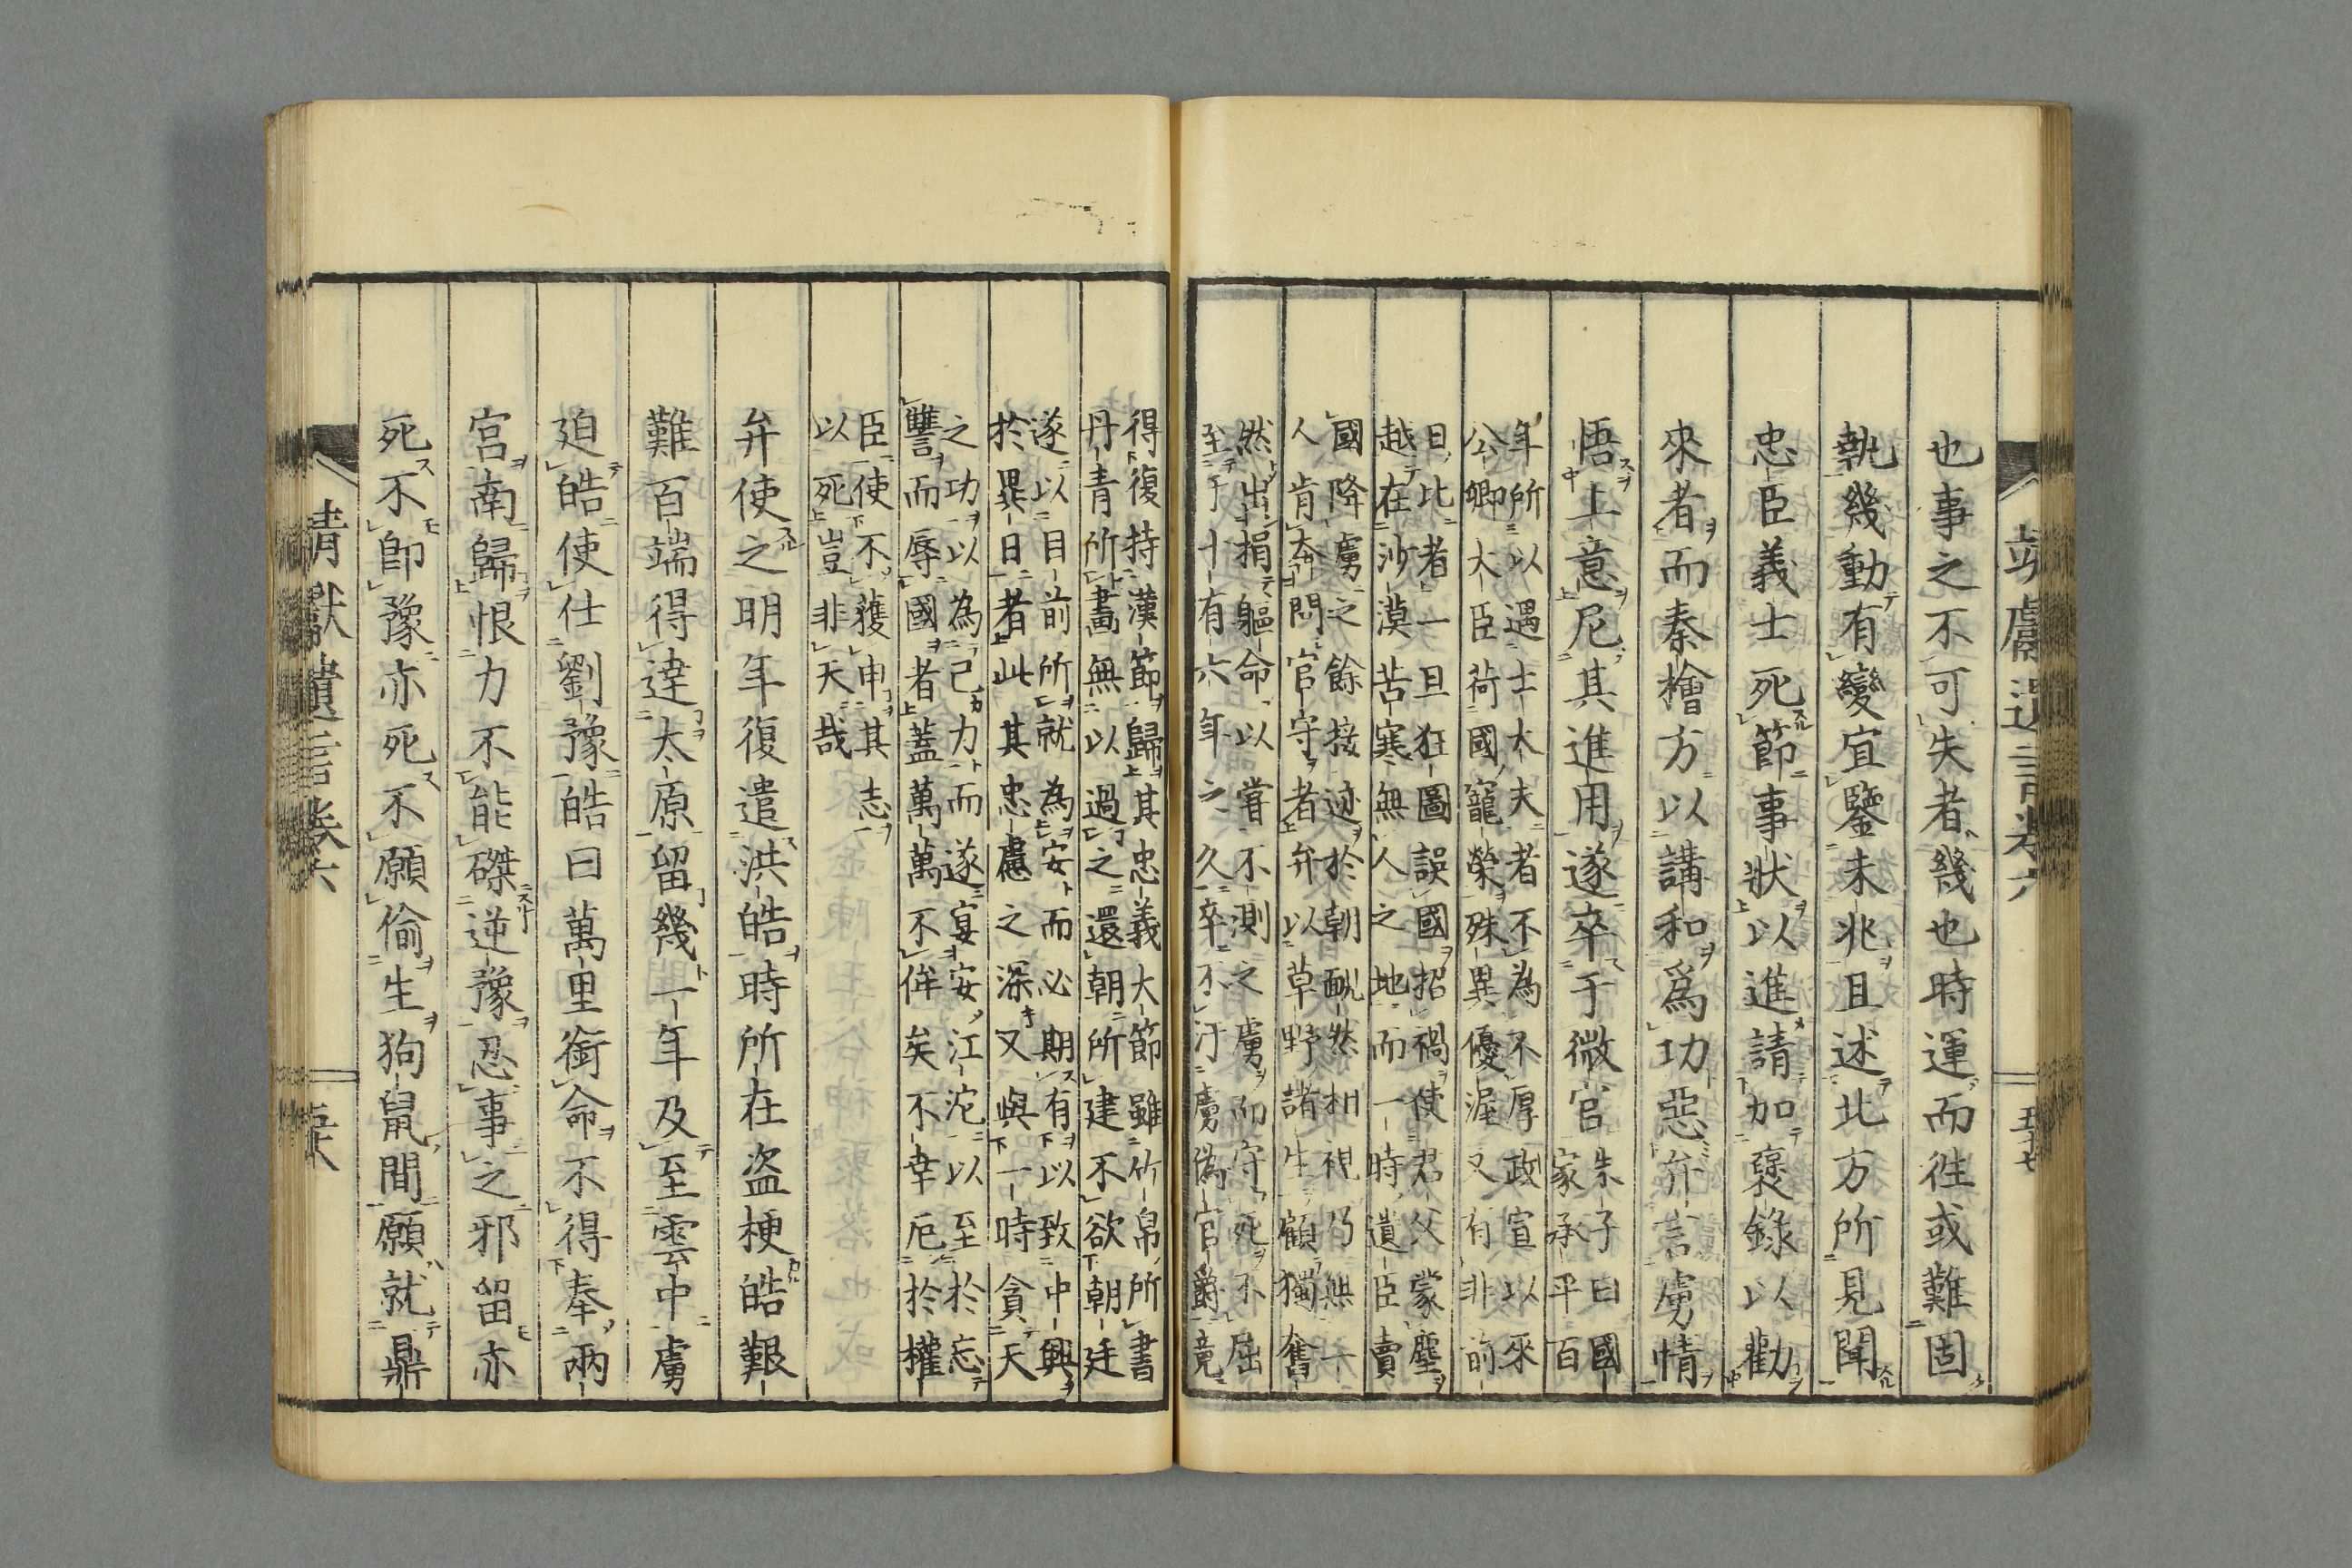 也事之不可失者幾也時運而徃或難固
執幾動有變宜鑒未兆且述北方所見聞
忠臣義士死節事狀以進請加襃錄以勸
來者而秦檜方以講和爲功惡弁言虜情
悟上意尼其進用遂卒于微官朱子曰國
家承平百
年所以遇士大夫者不為不厚政宣以來
公卿大臣荷國寵榮殊異優渥又有非前
日比者一旦狂圖誤國招禍使君父蒙塵
越在沙漠苦寒無人之地而一時遺臣賣
國降虜之餘接迹於朝靦然相視乃無一
人肯奔問官守者弁以草野諸生顧獨奮
然出捐軀命以嘗不測之虜而守死不屈
至于十有六年之久卒不汙虜偽官爵竟
得復持漢節歸其忠義大節雖竹帛所書
丹青所畫無以過之還朝所建不欲朝廷
遂以目前所就為安而必期有以致中興
於異日者此其忠慮之深又與一時貪天
之功以為己力而遂宴安江沱以至於忘
讐而辱國者蓋萬萬不侔矣不幸厄於權
臣使不獲申其志
以死豈非天哉
弁使之明年復遣洪皓時所在盜梗皓艱
難百端得達太原留幾一年及至雲中虜
廹皓使仕劉豫皓曰萬里銜命不得奉兩
宮南歸恨力不能磔逆豫忍事之邪留亦
死不卽豫亦死不願偷生狗鼠間願就鼎
靖獻遺言卷六